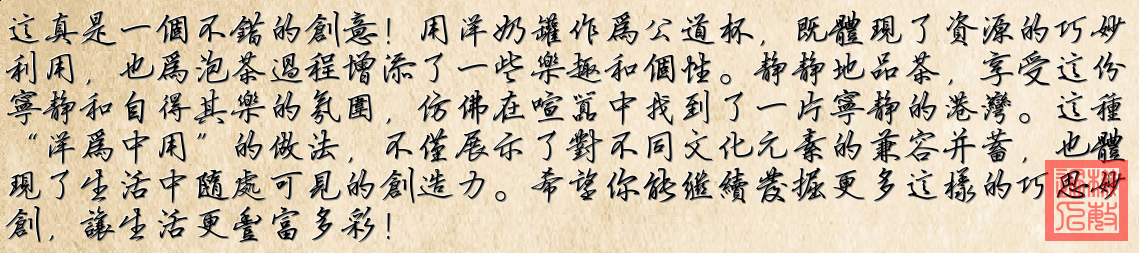 這真是一個不錯的創意！用洋奶罐作爲公道杯，既體現了資源的巧妙
利用，也爲泡茶過程增添了一些樂趣和個性。静静地品茶，享受這份
寧静和自得其樂的氛圍，仿佛在喧囂中找到了一片寧静的港灣。這種
“洋爲中用”的做法，不僅展示了對不同文化元素的兼容并蓄，也體
現了生活中隨處可見的創造力。希望你能繼續發掘更多這樣的巧思妙
創，讓生活更豐富多彩！